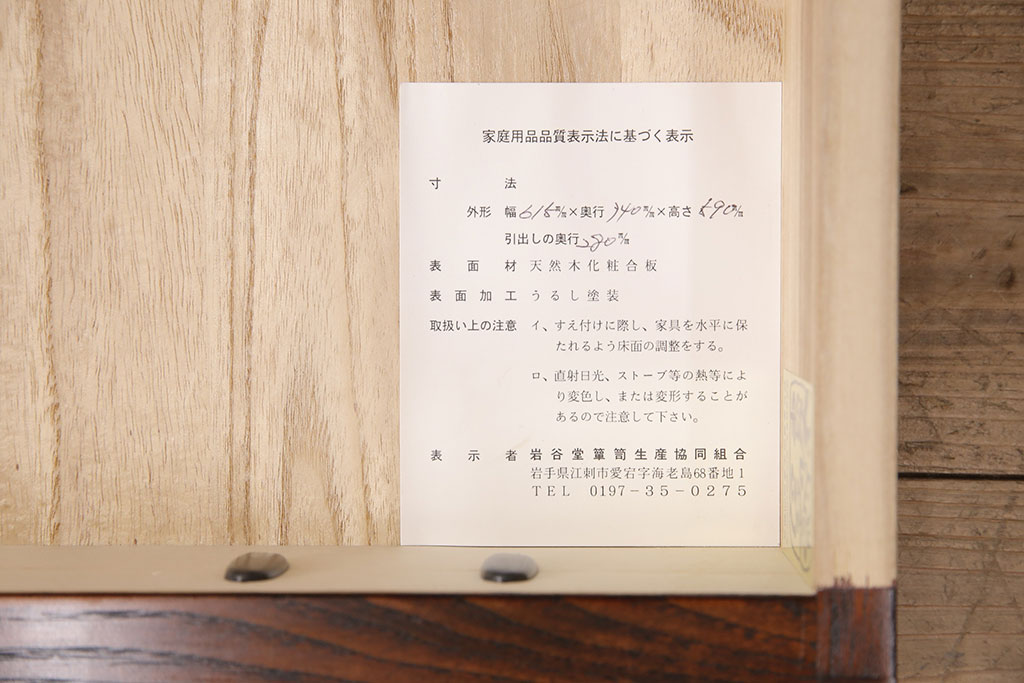 家庭用品品質表示法に基づく表示
寸法
外形 幅615㎜×奥行340㎜×高さ890㎜
引出しの奥行280㎜
表面材 天然木化粧合板
表面加工 うるし塗装
取扱い上の注意 イ、すえ付けに際し、家具を水平に保
たれるよう床面の調整をする。
ロ、直射日光、ストーブ等の熱等によ
り変色し、または変形することが
あるので注意して下さい。
表示者 岩谷堂簞笥生産協同組合
岩手県江刺市愛宕字海老島68番地1
TEL 0197-35-0275